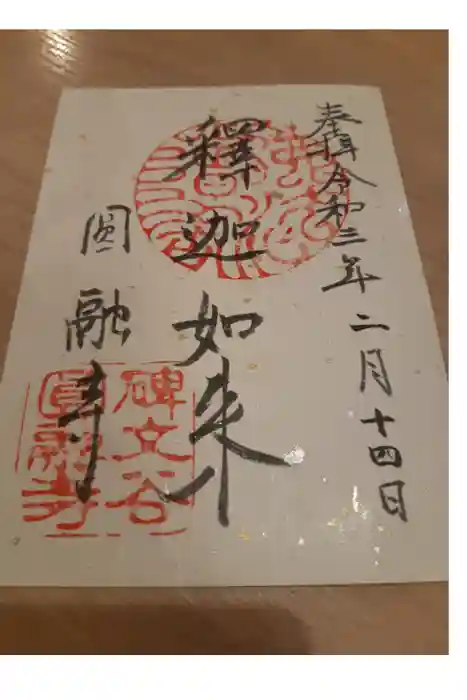 奉拝 令和三年二月十四日
釋迦如来
圓融寺
碑文谷
圓融寺